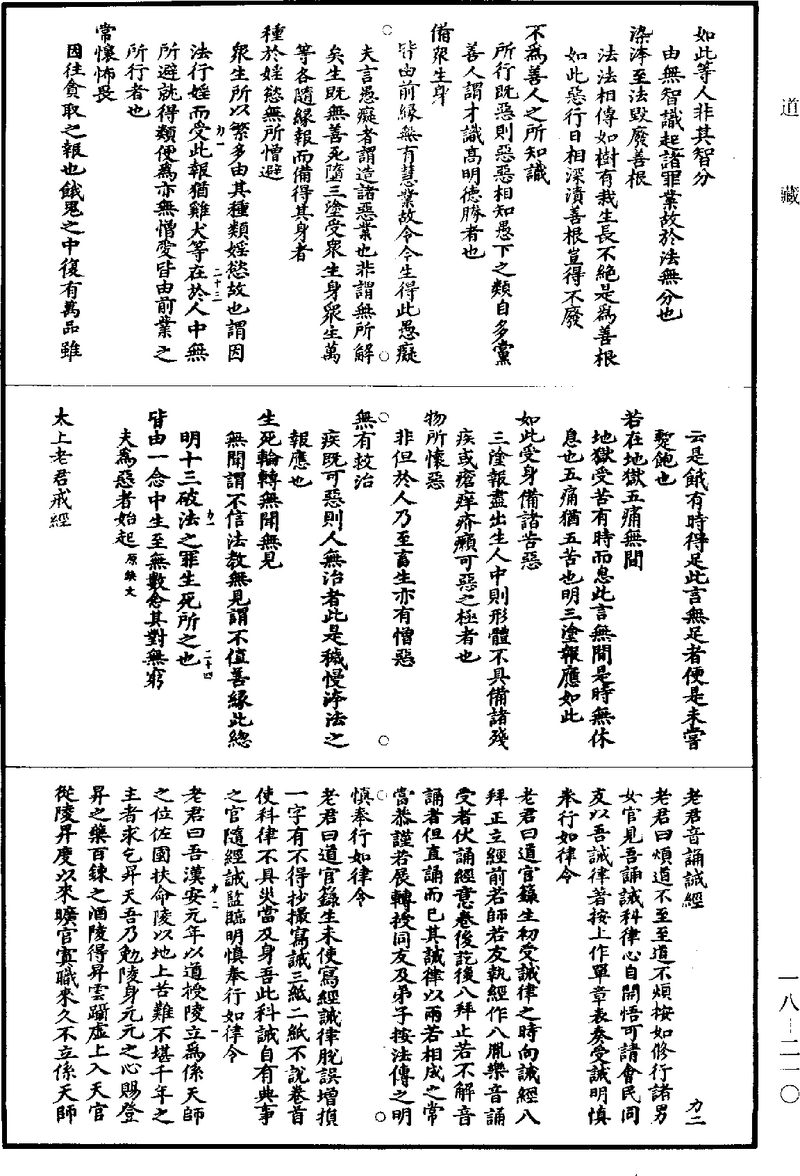 道藏
如此等人非其智分
由無智識起諸罪業故於法無分也
染滓至法毀廢善根
法法相傳如樹有栽生長不絕是為善根
如此惡行日相深漬善根豈得不廢
不為善人之所知識
所行既惡則惡惡相知愚下之類自多黨
善人謂才識高明德勝者也
備眾生身
皆由前緣無有慧業故令今生得此愚癡
夫言愚癡者謂造諸惡業也非謂無所解
矣生既無善死隨三塗受眾生身眾生萬
等各隨緣報而備得其身者
種於婬慾無所憎避
眾生所以繁多由其種類婬慾故也謂因
法行婬而受此報猶雞犬等在於人中無
力一
二十三
所避就得類便為亦無憎愛皆由前業之
所行者也
常懷怖畏
因往貪取之報也餓鬼之中復有萬品雖
云是餓有時得足此言無足者便是未嘗
蹔飽也
若在地獄五痛無間
地獄受苦有時而息此言無間是時無休
息也五痛猶五苦也明三塗報應如此
如此受身備諸苦惡
三塗報盡出生人中則形體不具備諸殘
疾或瘡痒疥癩可惡之極者也
物所懷惡
非但於人乃至畜生亦有憎惡
無有救治
疾既可惡則人無治者此是穢慢滓法之
報應也
生死輪轉無聞無見
無聞謂不信法教無見謂不值善緣此總
明十三破法之罪生死所之也
力一
二十四
皆由一念中生至無數念其對無窮
夫為惡者始起原缺文
太上老君戒經
老君音誦誡經
力二
老君曰煩道不至至道不煩按如修行諸男
女官見吾誦誡科律心自開悟可請會民同
友以吾誡律著按上作單章表奏受誡明慎
奉行如律令
老君曰道官籙生初受誡律之時向誡經八
拜正立經前若師若友執經作八胤樂音誦
受者伏誦經意卷後訖後八拜止若不解音
誦者但直誦而已其誡律以兩若相成之常
當恭謹若展轉授同友及弟子按法傳之明
慎奉行如律令
老君曰道官籙生未使寫經誡律脫誤增損
一字有不得抄撮寫誡三紙二紙不說卷首
使科律不具災當及身吾此科誡自有典事
之官隨經誡監臨明慎奉行如律令
力二
一
老君曰吾漢安元年以道授陵立為係天師
之位佐國扶命陵以地上苦難不堪千年之
主者求乞昇天吾乃勉陵身元元之心賜登
昇之藥百鍊之酒陵得昇雲躡虛上入天官
從陵昇度以來曠官寘職來久不立係天師
一八—二一〇